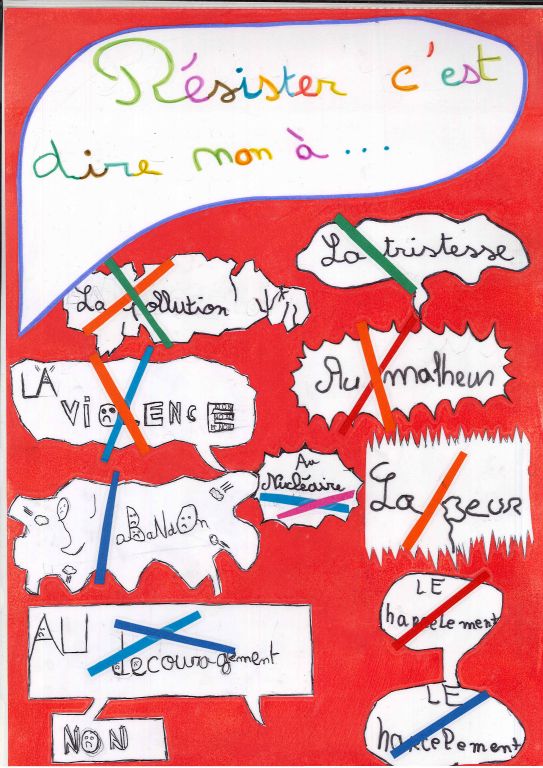 Résister c'est
dire non à ...
La tristesse
La pollution
Au malheur
LA
VIOLENCE
Au
Nucléaire
La peur
L'aBaNdOn
LE
harcelement
AU decouragement
LE
harcelement
NON